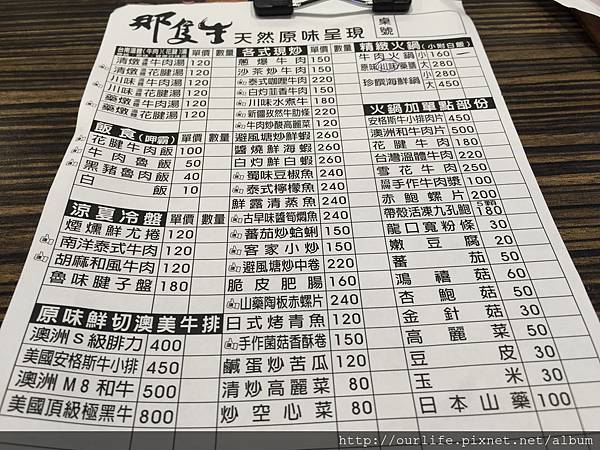 那隻牛 天然原味呈現
桌號
單價 數量
清燉 牛肉湯 120
清燉 花腱湯 120
川味 牛肉湯 120
川味 花腱湯 120
藥燉 牛肉湯 120
藥燉 花腱湯 120
飯食(呷霸) 單價 數量
花腱牛肉飯 100
牛肉魯飯 50
黑豬魯肉飯 40
白飯 10
涼夏冷盤 單價 數量
煙燻鮮尤捲 120
南洋泰式牛肉 120
胡麻和風牛肉 120
魯味腱子盤 180
原味鮮切澳美牛排
澳洲S級腓力 400
美國安格斯牛小排 450
澳洲M8和牛 500
美國頂級極黑牛 800
各式現炒 單價 數量
蔥爆牛肉 150
沙茶炒牛肉 150
泰式咖哩牛肉 220
白灼韮香牛肉 150
川味水煮牛 180
新疆孜然牛肋條 220
牛肉炒酸高麗菜 120
避風塘炒鮮蝦 260
醬燒鮮海蝦 260
白灼鮮白蝦 260
蜀味豆椒魚 240
泰式檸檬魚 240
鮮露清蒸魚 240
古早味醬筍燜魚 240
番茄炒蛤蜊 150
客家小炒 150
避風塘炒中卷 220
脆皮肥腸 160
山藥陶板赤螺片 240
日式烤青魚 120
手作菌菇香酥卷 150
鹹蛋炒苦瓜 120
清炒高麗菜 80
炒空心菜 80
精緻火鍋(小附白飯)
牛肉火鍋 小 160
大 280
珍饌海鮮鍋 小 280
大 450
火鍋加單點部份
安格斯牛小排肉片 450
澳洲和牛肉片 500
花腱牛肉 180
台灣溫體牛肉 220
雪花牛肉 250
手作牛肉漿 100
赤鮑螺片 200
帶殼活凍九孔鮑 5顆 180
龍口寬粉條 30
嫩豆腐 20
番茄 50
鴻禧菇 60
杏鮑菇 50
金針菇 30
高麗菜 50
豆皮 30
玉米 30
日本山藥 100
http://ourlife.pixnet.net/album